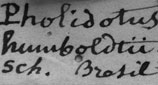 Pholidotus
humboldtii
Sch. Brasil